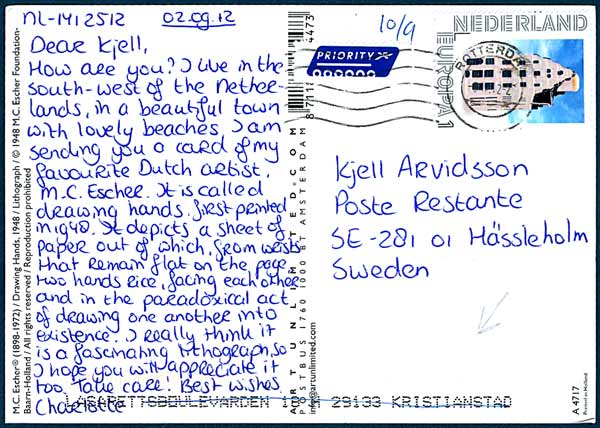 NL-1412512 02.09.12
10/9
Dear Kjell,
How are you? I live in the
south-west of the Nether-
lands, in a beautiful town
with lovely beaches. I am
sending you a card of my
favourite Dutch artist,
M.C. Escher. It is called
drawing hands, first printed
in 1948. It depicts a sheet of
paper out of which, from wrists
that remain flat on the page,
two hands rise, facing each other
and in the paradoxical act
of drawing one another into
existence. I really think it
is a fascinating lithograph, so
I hope you will appreciate it
too. Take care! Best wishes,
Charlotte
M.C. Escher® (1898-1972) / Drawing Hands, 1948 / Lithograph / © 1948 M.C. Escher Foundation-
Baarn-Holland / All rights reserved / Reproduction prohibited
ART UNLIMITED.COM
POSTBUS 1760 1000 BT AMSTERDAM
info@artunlimited.com
8 71111
4473
PRIORITY
NEDERLAND
EUROPA 1
ROTTERDAM
Kjell Arvidsson
Poste Restante
SE-281 01 Hässleholm
Sweden
LASARETTSBOULEVARDEN
29133 KRISTIANSTAD
A 4717
Printed in Holland